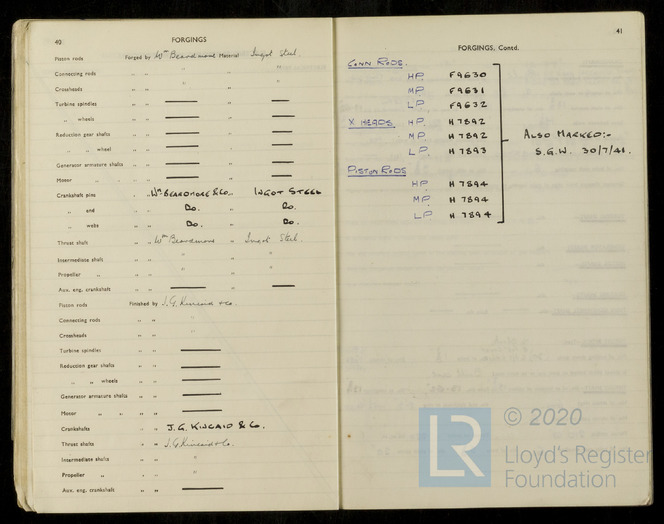 40
FORGINGS
Piston rods Forged by Wm Beardmore Material Ingot Steel.
Connecting rods " " " " "
Crossheads " " " " "
Turbine spindles " " — " —
" wheels " " — " —
Reduction gear shafts " " — " —
" " wheel " " — " —
Generator armature shafts " " — " —
Motor " " " " — " —
Crankshaft pins " " Wm BEARDMORE & Co. " INGOT STEEL
" and " " Do. " Do.
" webs " " Do. " Do.
Thrust shaft " " Wm Beardmore " Ingot Steel.
Intermediate shaft " " " " "
Propeller " " " " " "
Aux. eng. crankshaft " " — " —
Piston rods Finished by J.G. Kincaid & Co.
Connecting rods " " "
Crossheads " " "
Turbine spindles " " —
Reduction gear shafts " " —
" " wheels " " —
Generator armature shafts " " —
Motor " " " " —
Crankshafts " " J.G. KINCAID & Co.
Thrust shafts " " J.G. Kincaid & Co.
Intermediate shafts " " "
Propeller " " " "
Aux. eng. crankshaft " " —
41
FORGINGS, Contd.
CONN RODS.
HP F9630
MP F9631
LP F9632
X HEADS. HP. H7892
MP H7892
LP H7893
PISTON RODS
HP H7894
MP. H7894
LP H7894
ALSO MARKED:-
S.G.W. 30/7/41.
LR © 2020
Lloyd's Register
Foundation